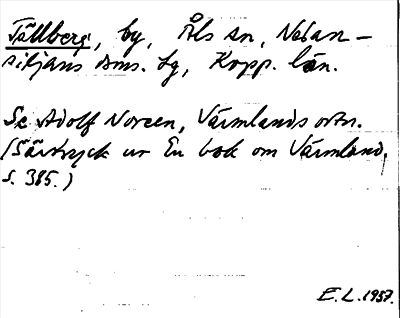 Tällberg, by, Åls sn, Nedan-
siljans doms. tg, Kopp. län.
Se Adolf Noreen, Värmlands ortn.
(Särtryck ur En bok om Värmland,
s. 385.)
E.L. 1957.